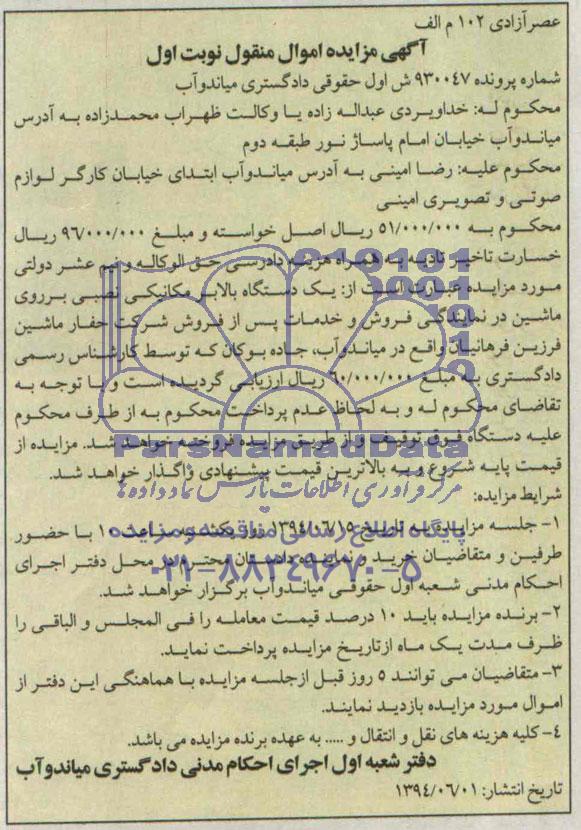 عصر آزادی ۱۰۲ م الف
آگهی مزایده اموال منقول نوبت اول
شماره پرونده ۹۳۰۰۴۷ ش اول حقوقی دادگستری میاندوآب
محکوم له: خداویردی عبداله زاده یا وکالت ظهراب محمدزاده به آدرس
میاندوآب خیابان امام پاساژ نور طبقه دوم
محکوم علیه: رضا امینی به آدرس میاندوآب ابتدای خیابان کارگر لوازم
صوتی و تصویری امینی
محکوم به ۵۱/۰۰۰/۰۰۰ ریال اصل خواسته و مبلغ ۹۶/۰۰۰/۰۰۰ ریال
خسارت تاخیر تادیه به همراه هزینه دادرسی حق الوکاله و نیم عشر دولتی
مورد مزایده عبارت است از: یک دستگاه بالابر مکانیکی نصبی برروی
ماشین در نمایندگی فروش و خدمات پس از فروش شرکت حفار ماشین
فرزین فرهانیان واقع در میاندوآب، جاده بوکان که توسط کارشناس رسمی
دادگستری به مبلغ ۶۰/۰۰۰/۰۰۰ ریال ارزیابی گردیده است و با توجه به
تقاضای محکوم له و به لحاظ عدم پرداخت محکوم به از طرف محکوم
علیه دستگاه فوق توقیف و از طریق مزایده فروخته خواهد شد. مزایده از
قیمت پایه شروع و به بالاترین قیمت پیشنهادی واگذار خواهد شد.
ParsNamadData
مرکز فرآوری اطلاعات پارس نماد داده ها
شرایط مزایده:
۱- جلسه مزایده به تاریخ ۱۳۹۴/۰۶/۱۵ روز یکشنبه ساعت ۱۰ با حضور
پایگاه اطلاع رسانی مناقصه و مزایده
طرفین و متقاضیان خرید و نماینده دادستان محترم در محل دفتر اجرای
۰۲۱-۸۸۳۴۹۶۷۰-۵
احکام مدنی شعبه اول حقوقی میاندوآب برگزار خواهد شد.
۲- برنده مزایده باید ۱۰ درصد قیمت معامله را فی المجلس و الباقی را
ظرف مدت یک ماه ازتاریخ مزایده پرداخت نماید.
۳- متقاضیان می توانند ۵ روز قبل ازجلسه مزایده با هماهنگی این دفتر از
اموال مورد مزایده بازدید نمایند.
۴- کلیه هزینه های نقل و انتقال و ..... به عهده برنده مزایده می باشد.
دفتر شعبه اول اجرای احکام مدنی دادگستری میاندوآب
تاریخ انتشار: ۱۳۹۴/۰۶/۰۱